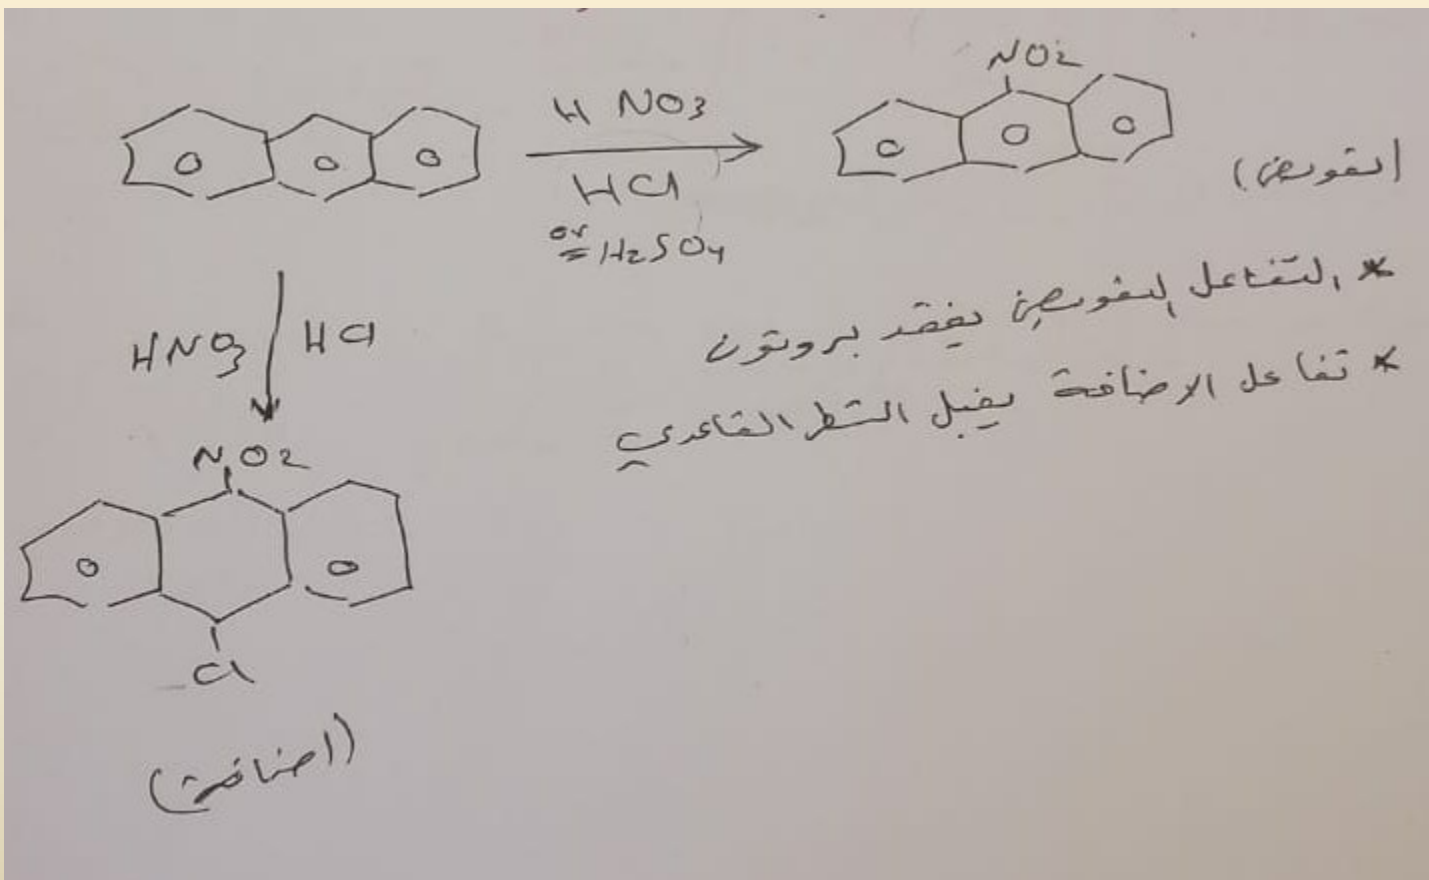 NO2
H NO3
HCl
or H2SO4
(تعويض)
* التفاعل التعويضي يفقد بروتون
* تفاعل الاضافة يقبل الشطر القاعدي
HNO3 HCl
NO2
Cl
(اضافة)